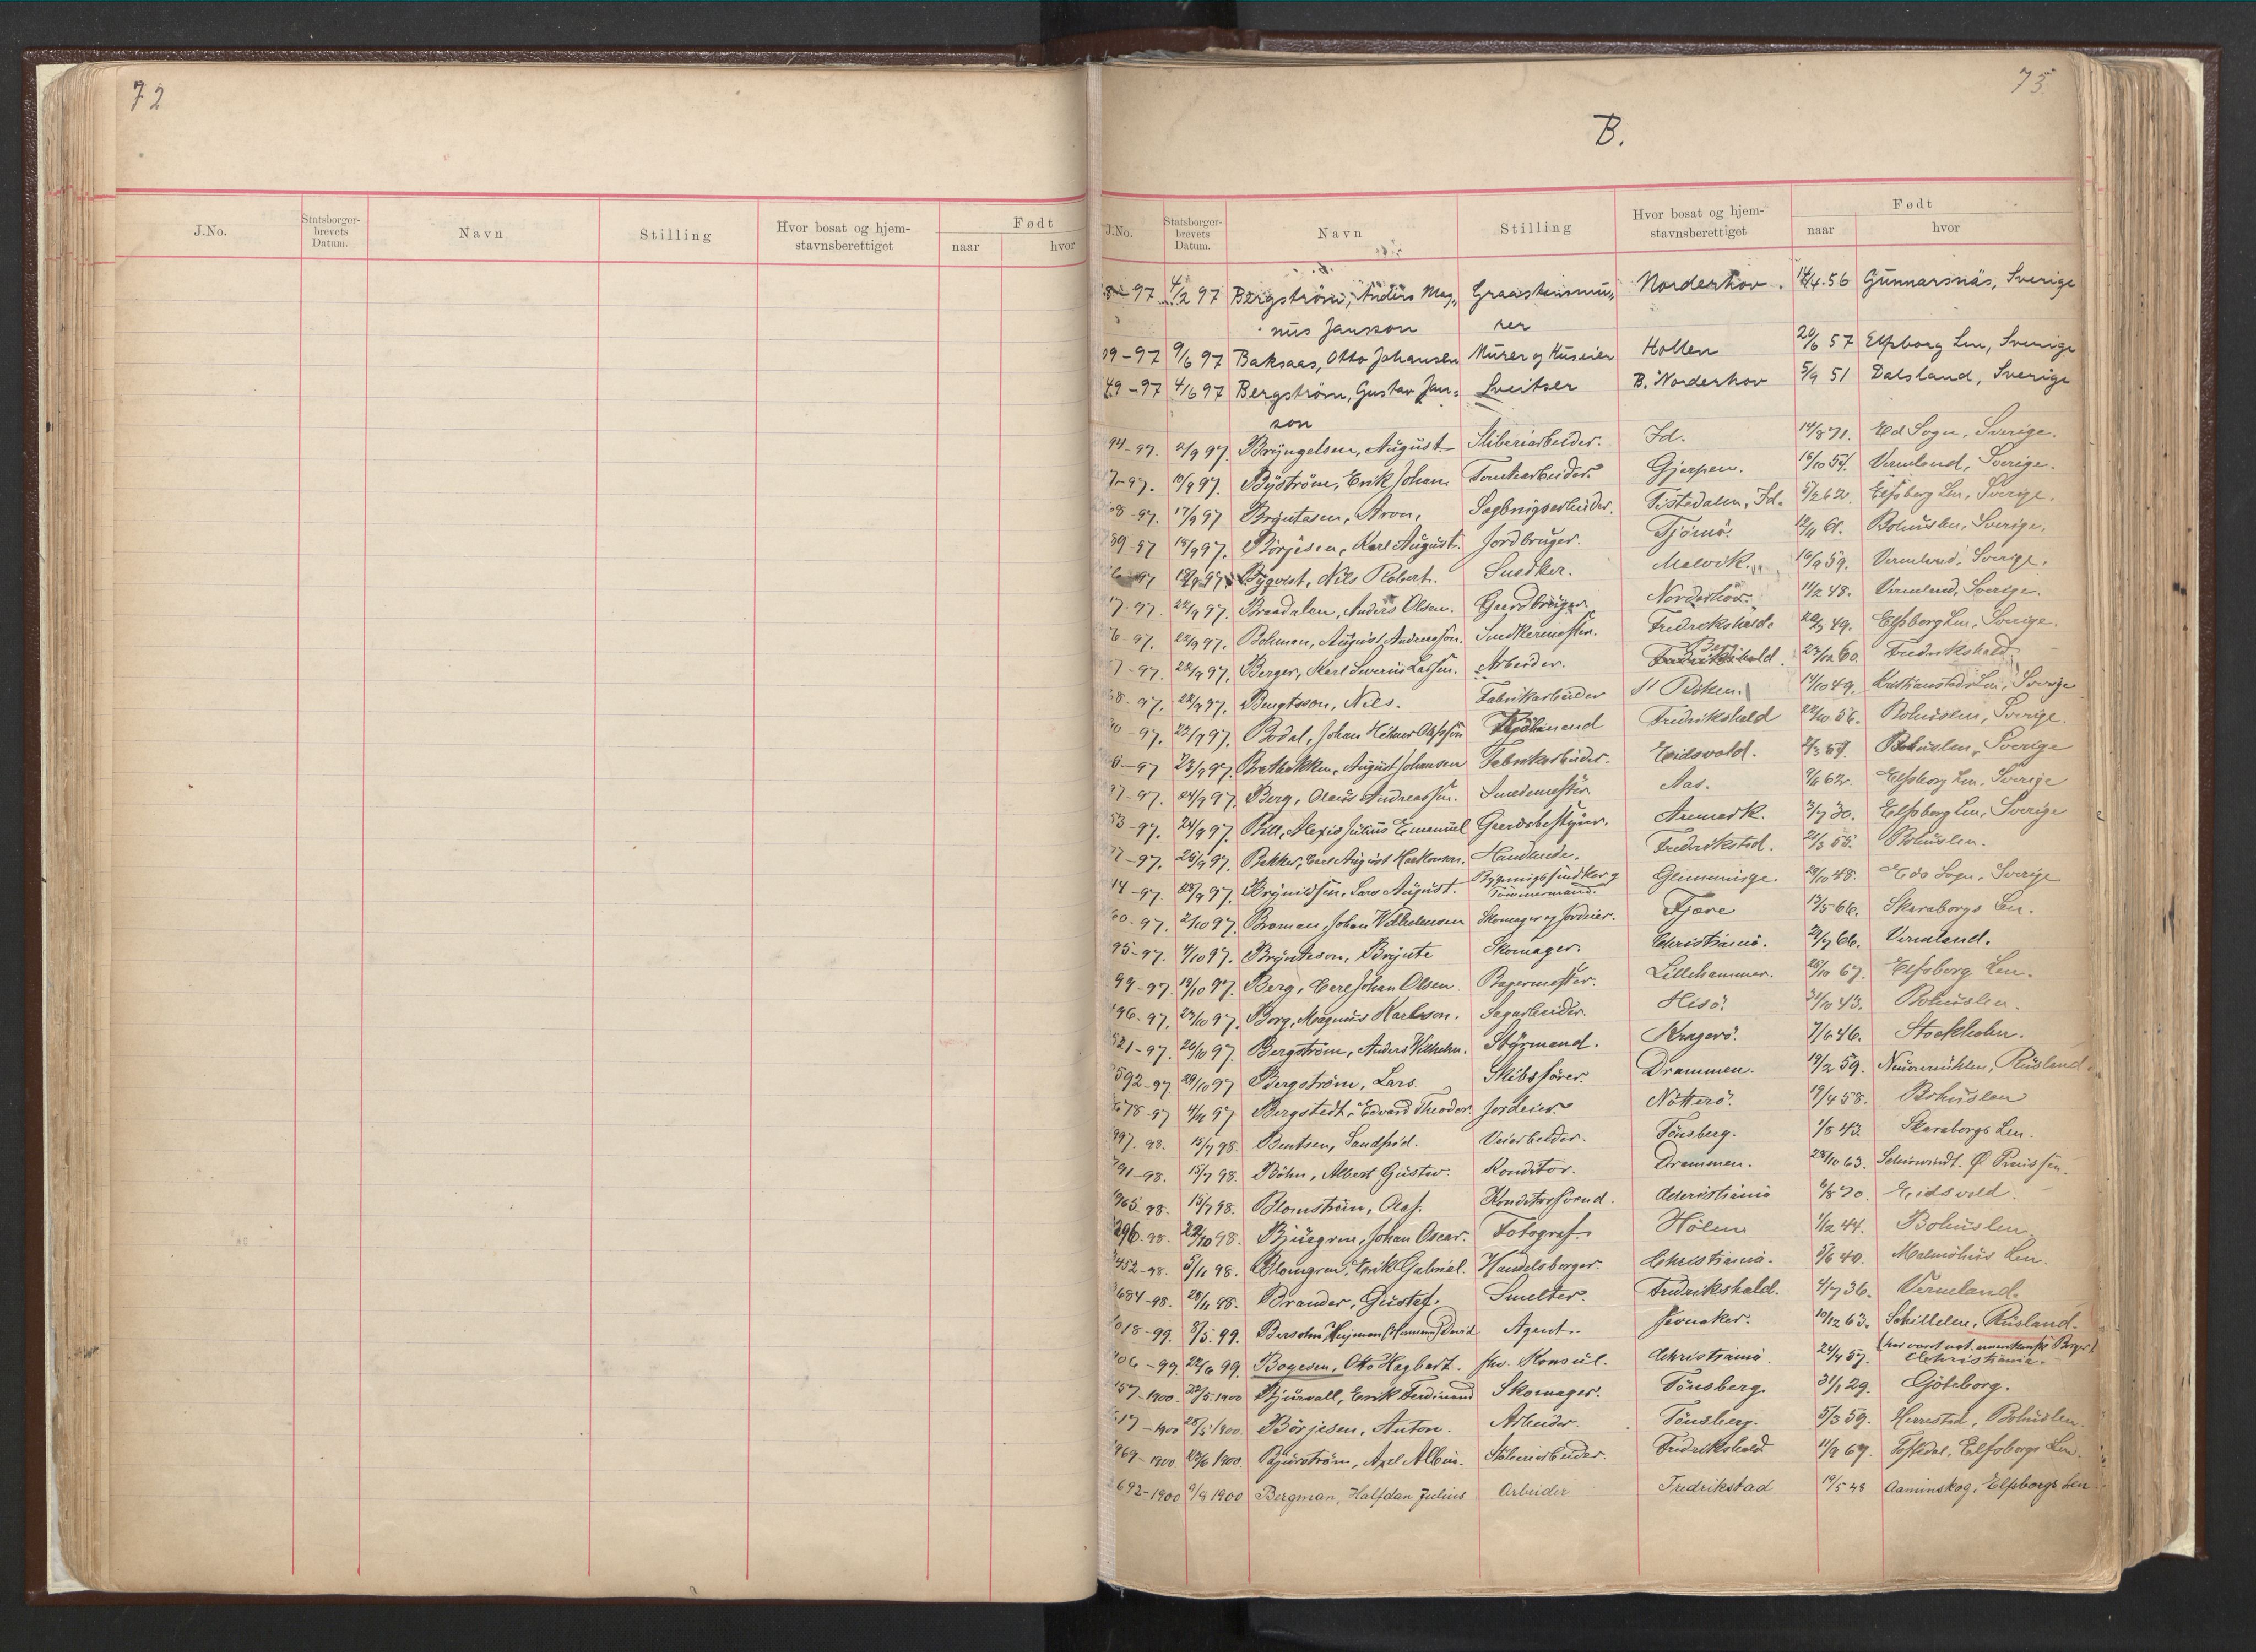 72
J.No.
Statsborger-
brevets
Datum.
Navn
Stilling
Hvor bosat og hjem-
stavnsberettiget
Født
naar
hvor
75.
B.
J.No.
Statsborger-
brevets
Datum.
Navn
Stilling
Hvor bosat og hjem-
stavnsberettiget
Født
naar
hvor
97 4/2 97 Bergström, Anders Mag„ Graastensmu„ Norderhov. 14/4. 56 Gunnarsnäs, Sverige
nus Jansson rer
9-97 9/6 97 Baksaas, Otto Johansen Murer og Huseier Hollen 20/6 57 Elfsborg Len, Sverige
49-97 4/6 97 Bergström, Gustav Jan= Sveitser B. Norderhov 5/9 51 Dalsland, Sverige
son
94-97. 2/9 97. Bryngelsen, August Sliberiarbeider. Id. 14/8 71. Ed Sogn, Sverige.
7-97. 10/9 97. Byström, Erik Johan Tomtearbeider Gjerpen. 16/10 54. Vermland, Sverige.
8-97. 17/9 97 Bryntesen, Aron, Sagbrugsarbeider. Tistedalen, Id. 5/2 62. Elfsborg Len, Sverige.
89-97 18/9 97. Börjesen, Karl August. Jordbruger. Tjömö. 12/11 61. Bohuslen, Sverige.
97 18/9 97 Byqvist, Nils Robert. Snedker. Malvik. 16/9 59. Vermland, Sverige.
17-97. 22/9 97. Braadalen, Anders Olsen. Gaardbruger. Norderhov. 11/2 48. Vermland, Sverige.
6-97. 22/9 97. Bohman, August Andreassen. Snedkermester. Fredrikshald. 20/3 49. Elfsborg Len, Sverige.
7-97. 22/9 97. Berger, Karl Severin Larsen. Arbeider. Fredrikshald. 27/12 60. Fredrikshald
8-97. 22/9 97. Bengtsson, Nils. Fabrikarbeider Asker. 14/10 49. Kristianstads Len, Sverige
0-97. 22/9 97. Bodal, Johan Hilmer Olafsson Fredrikshald 22/10 56. Bohuslen, Sverige.
6-97 23/9 97. Brathakken, August Johansen Fabrikarbeider. Eidsvold. 2/3 57. Bohuslen, Sverige
7-97. 24/9 97. Berg, Olaus Andreassen. Smedemester. Aas. 9/6 62. Elfsborg Len, Sverige
53-97. 24/9 97. Bill, Alexis Julius Emanuel Gaardsbestyrer. Aremark. 3/7 30. Elfsborg Len, Sverige
7-97. 25/9 97. Bakke, Carl August Haakonsen. Handlende. Fredrikstad. 21/3 55. Bohuslen.
14-97. 28/9 97. Brynildsen, Lars August. Bygningssnedker og Glemminge. 29/10 48. Eds Sogn, Sverige
Tömmermand.
60-97. 2/10 97. Broman, Johan Wilhelmsen Skomager og Jordeier. Fjære 13/5 66. Skaraborgs Len.
95-97. 4/10 97. Brynteson, Brynte Skomager. Christiania. 29/7 66. Vermland.
99-97. 19/10 97. Berg, Carl Johan Olsen. Bagermester. Lillehammer. 25/10 67. Elfsborg Len.
196-97. 23/10 97. Borg, Magnus Karlsson. Sagarbeider. Hisö. 31/10 43. Bohuslen.
521-97. 26/10 97. Bergström, Anders Vilhelm. Styrmand. Kragerö. 7/6 46. Stockholm.
592-97. 29/10 97 Bergström, Lars. Skibsförer. Drammen. 19/2 59. Neuermühlen, Rusland.
678-97 4/11 97 Bergstedt, Edvard Theodor. Jordeier. Nötterö. 19/4 58. Bohuslen
997-98. 15/7 98. Bentsen, Sandfrid. Veiarbeider. Tönsberg. 1/8 43 Skaraborgs Len.
791-98. 15/7 98. Böhn, Albert Gustav. Konditor. Drammen. 28/10 63. Schirwindt. Ø Preussen.
965-98. 15/7 98. Blomström, Olaf. Konditorsvend. Christiania 6/8 70. Eidsvold.
296-98. 22/10 98. Bjurgren, Johan Oscar. Fotograf. Hölen 1/12 44. Bohuslen
3452-98. 5/11 98. Blomgren, Erik Gabriel. Handelsborger. Christiania. 5/6 40. Malmöhus Len.
3684-98. 28/11 98. Brander, Gustaf. Smelter. Fredrikshald. 4/7 36. Vermland.
1018-99. 8/5. 99. Bersohn Hejman (Herman) David Agent. Jevnaker. 10/12 63. Schillelen, Rusland.
406-99. 22/6 99. Boyesen, Otto Hagbart. fhv. Konsul. Christiania. 24/4 57. (har været nat. amerikansk Borger)
Christiania.
157-1900. 22/5-1900 Bjurvall, Erik Ferdinand Skomager. Tönsberg 31/1 29. Göteborg.
17-1900 28/5 1900. Börjesen, Anton. Arbeider. Tönsberg. 5/3 59. Herrestad, Bohuslen.
969-1900. 23/6 1900. Bjurström, Axel Albin. Sliberiarbeider. Fredrikshald 11/9 67. Elfsborgs Len.
692-1900 9/8 1900 Bergman, Halfdan Julius Arbeider Fredrikstad 19/5 48 Aaminskog, Elfsborgs Len